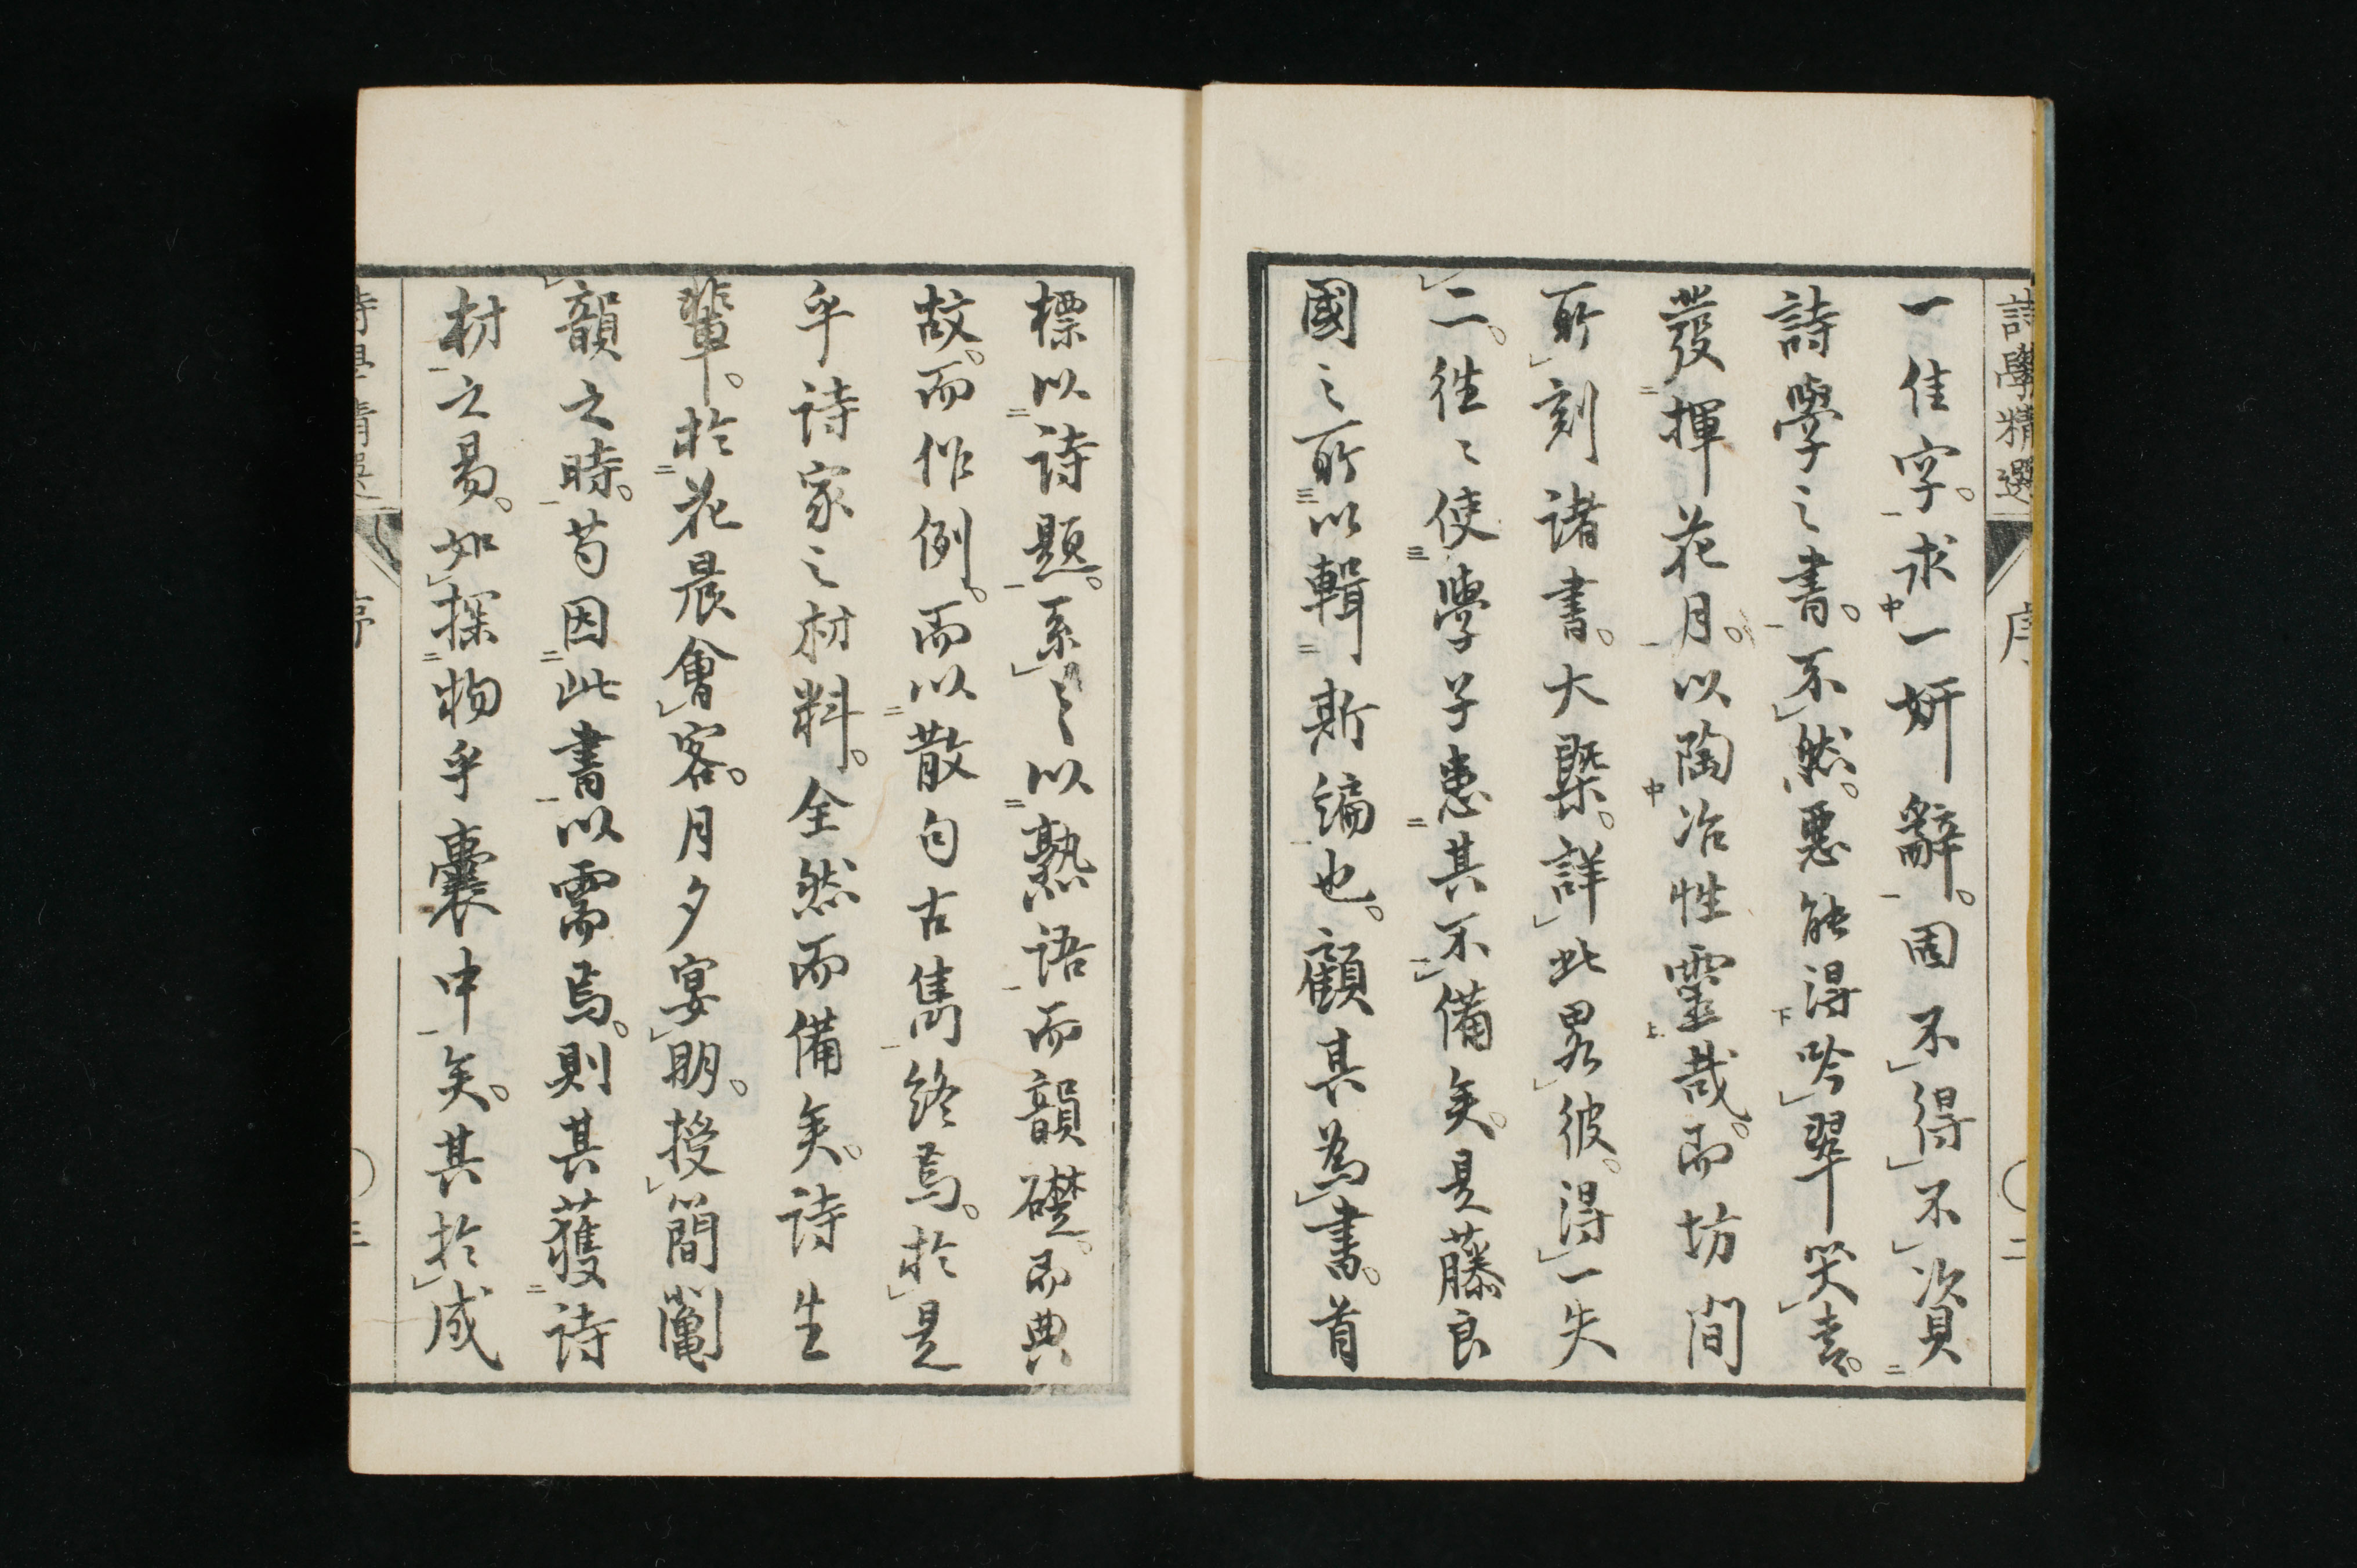 詩學精選
序
二
一佳字。求一妍辭。固不得不資
詩學之書。不然。惡能得吟翠笑青。
發揮花月。以陶冶性靈哉。而坊間
所刻諸書。大槩。詳此畧彼。得一失
二。往々使學子患其不備矣。是藤良
國之所以輯斯編也。顧其為書。首
標以詩題。系之以熟語而韻礎。而典
故。而作例。而以散句古雋終焉。於是
乎詩家之材料。全然而備矣。詩生
輩。於花晨會客。月夕宴朋。授簡鬮
韻之時。苟因此書以需焉。則其獲詩
材之易。如探物乎囊中矣。其於成
序
三